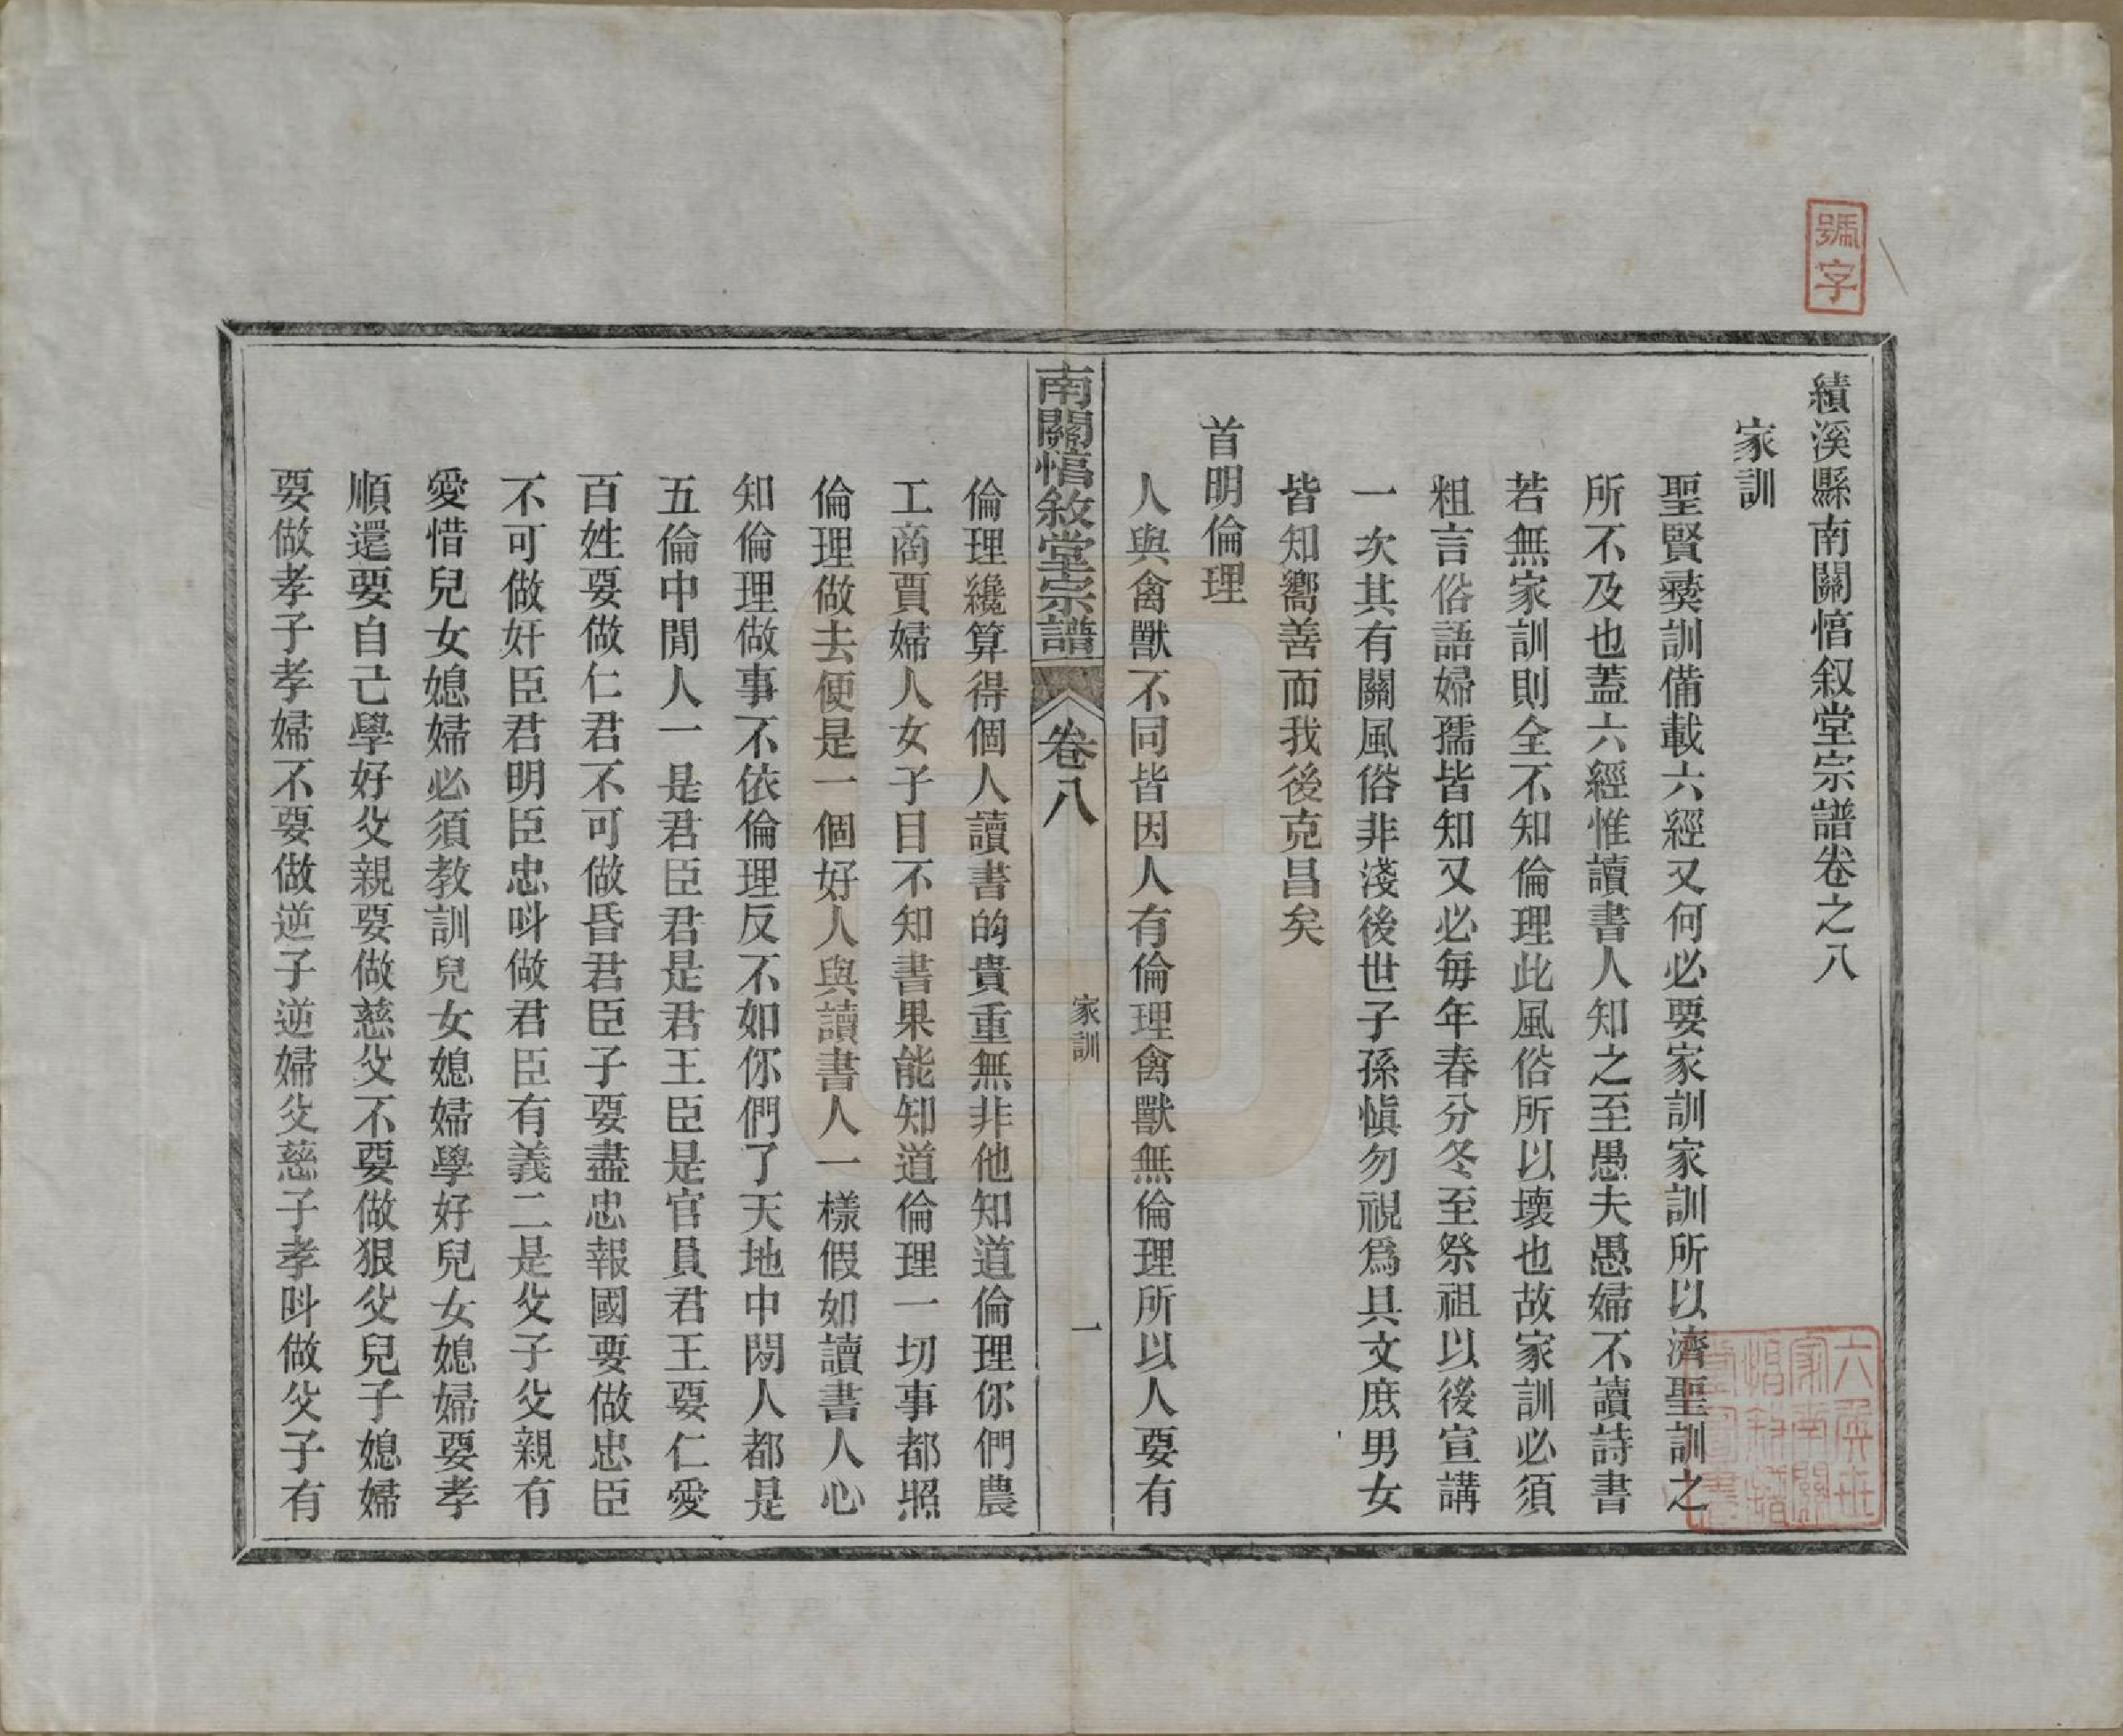 號字
績溪縣南關惇叙堂宗譜卷之八
家訓
聖賢彞訓備載六經又何必要家訓家訓所以濟聖訓之
所不及也蓋六經惟讀書人知之至愚夫愚婦不讀詩書
若無家訓則全不知倫理此風俗所以壞也故家訓必須
粗言俗語婦孺皆知又必每年春分冬至祭祖以後宣講
一次其有關風俗非淺後世子孫愼勿視爲具文庶男女
皆知嚮善而我後克昌矣
首明倫理
人與禽獸不同皆因人有倫理禽獸無倫理所以人要有
南關惇敘堂宗譜 卷八 家訓 一
倫理纔算得個人讀書的貴重無非他知道倫理你們農
工商賈婦人女子目不知書果能知道倫理一切事都照
倫理做去便是一個好人與讀書人一樣假如讀書人心
知倫理做事不依倫理反不如你們了天地中間人都是
五倫中閒人一是君臣君是君王臣是官員君王要仁愛
百姓要做仁君不可做昏君臣子要盡忠報國要做忠臣
不可做奸臣君明臣忠呌做君臣有義二是父子父親有
愛惜兒女媳婦必須教訓兒女媳婦學好兒女媳婦要孝
順還要自己學好父親要做慈父不要做狠父兒子媳婦
要做孝子孝婦不要做逆子逆婦父慈子孝呌做父子有